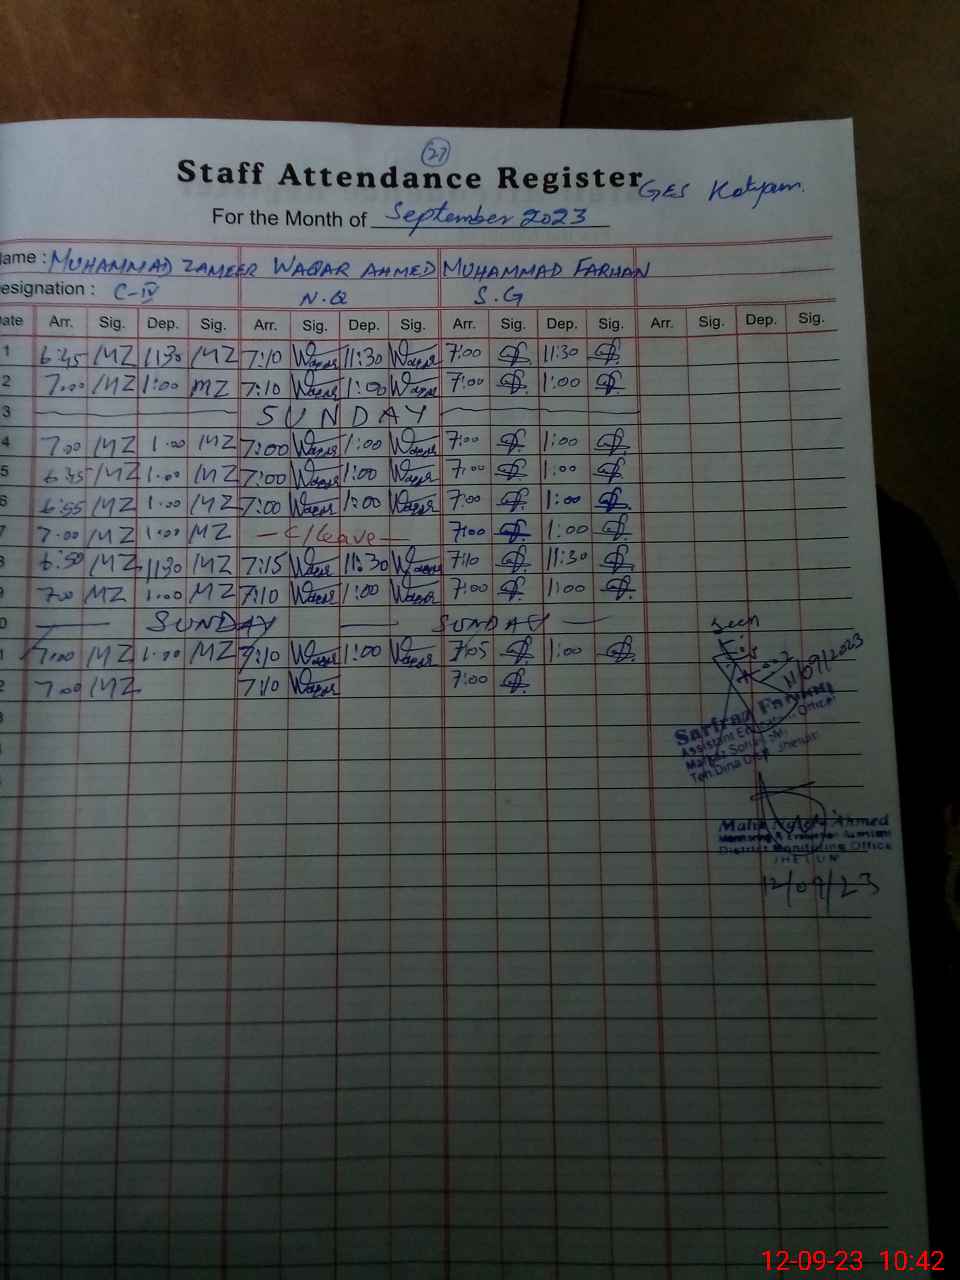 27
Staff Attendance Register GES Kotyam.
For the Month of September 2023
ame : MUHAMMAD ZAMEER WAQAR AHMED MUHAMMAD FARHAN
esignation : C-IV N.Q S.G
ate Arr. Sig. Dep. Sig. Arr. Sig. Dep. Sig. Arr. Sig. Dep. Sig. Arr. Sig. Dep. Sig.
1 6:45 MZ 1130 MZ 7:10 Waqar 11:30 Waqar 7:00 11:30
2 7:00 MZ 1:00 MZ 7:10 Waqar 1:00 Waqar 7:00 1:00
3 SUNDAY
4 7:00 MZ 1:00 MZ 7:00 Waqar 1:00 Waqar 7:00 1:00
5 6:45 MZ 1:00 MZ 7:00 Waqar 1:00 Waqar 7:00 1:00
6 6:55 MZ 1:00 MZ 7:00 Waqar 1:00 Waqar 7:00 1:00
7 7:00 MZ 1:00 MZ — C/Leave — 7:00 1:00
8 6:50 MZ 1130 MZ 7:15 Waqar 11:30 Waqar 7:10 11:30
9 7:00 MZ 1:00 MZ 7:10 Waqar 1:00 Waqar 7:00 1:00
0 — SUNDAY — SUNDAY —
1 7:00 MZ 1:00 MZ 7:10 Waqar 1:00 Waqar 7:05 1:00
2 7:00 MZ 7:10 Waqar 7:00
Seen
11/09/2023
Sarfraz
Assistant Education Officer
Teh:Dina Dist Jhelum
Ahmed
District Monitoring Office
JHELUM
12/09/23
12-09-23 10:42